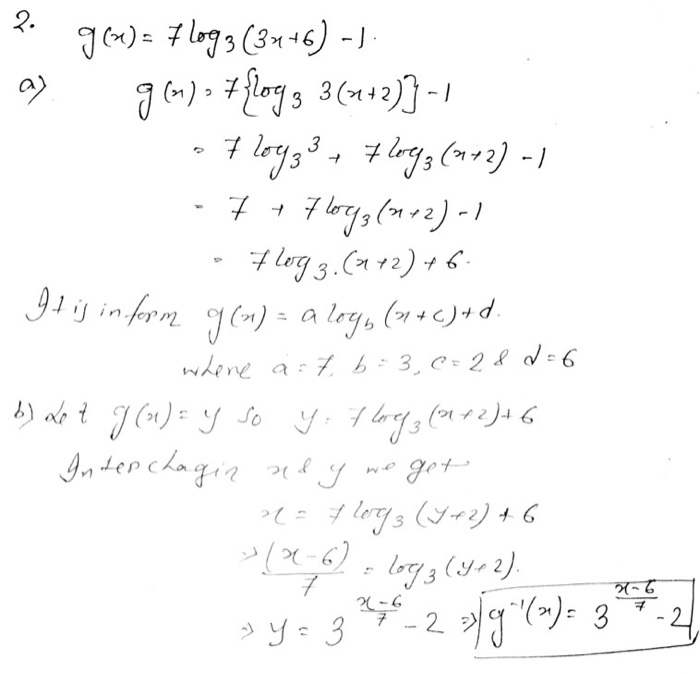 2. g(x) = 7 log₃(3x+6) - 1.
a) g(x) = 7{log₃ 3(x+2)} - 1
= 7 log₃3 + 7 log₃(x+2) - 1
= 7 + 7 log₃(x+2) - 1
= 7 log₃.(x+2) + 6.
It is in form g(x) = a log_b (x+c)+d.
where a = 7, b = 3, c = 2 & d = 6
b) Let g(x) = y so y = 7 log₃(x+2)+6
Interchagin x & y we get
x = 7 log₃(y+2) + 6
⇒ (x-6)/7 = log₃(y+2).
⇒ y = 3^((x-6)/7) - 2 ⇒ g⁻¹(x) = 3^((x-6)/7) - 2